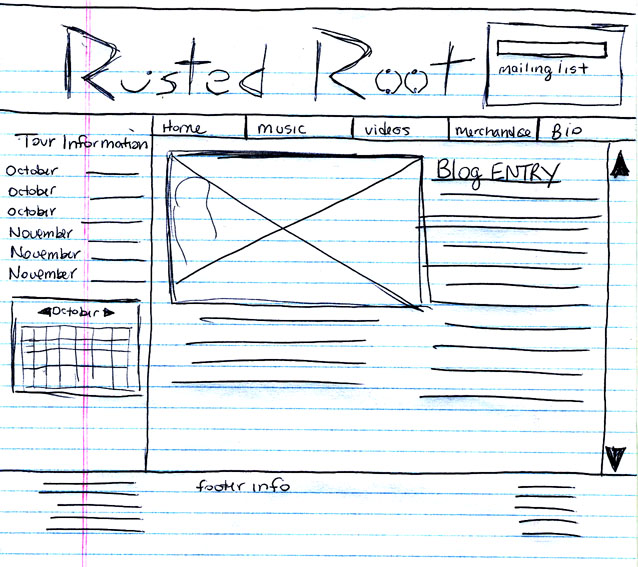 Rusted Root
mailing list
Home music videos merchandise Bio
Tour Information
October
October
October
November
November
November
October
Blog ENTRY
footer info